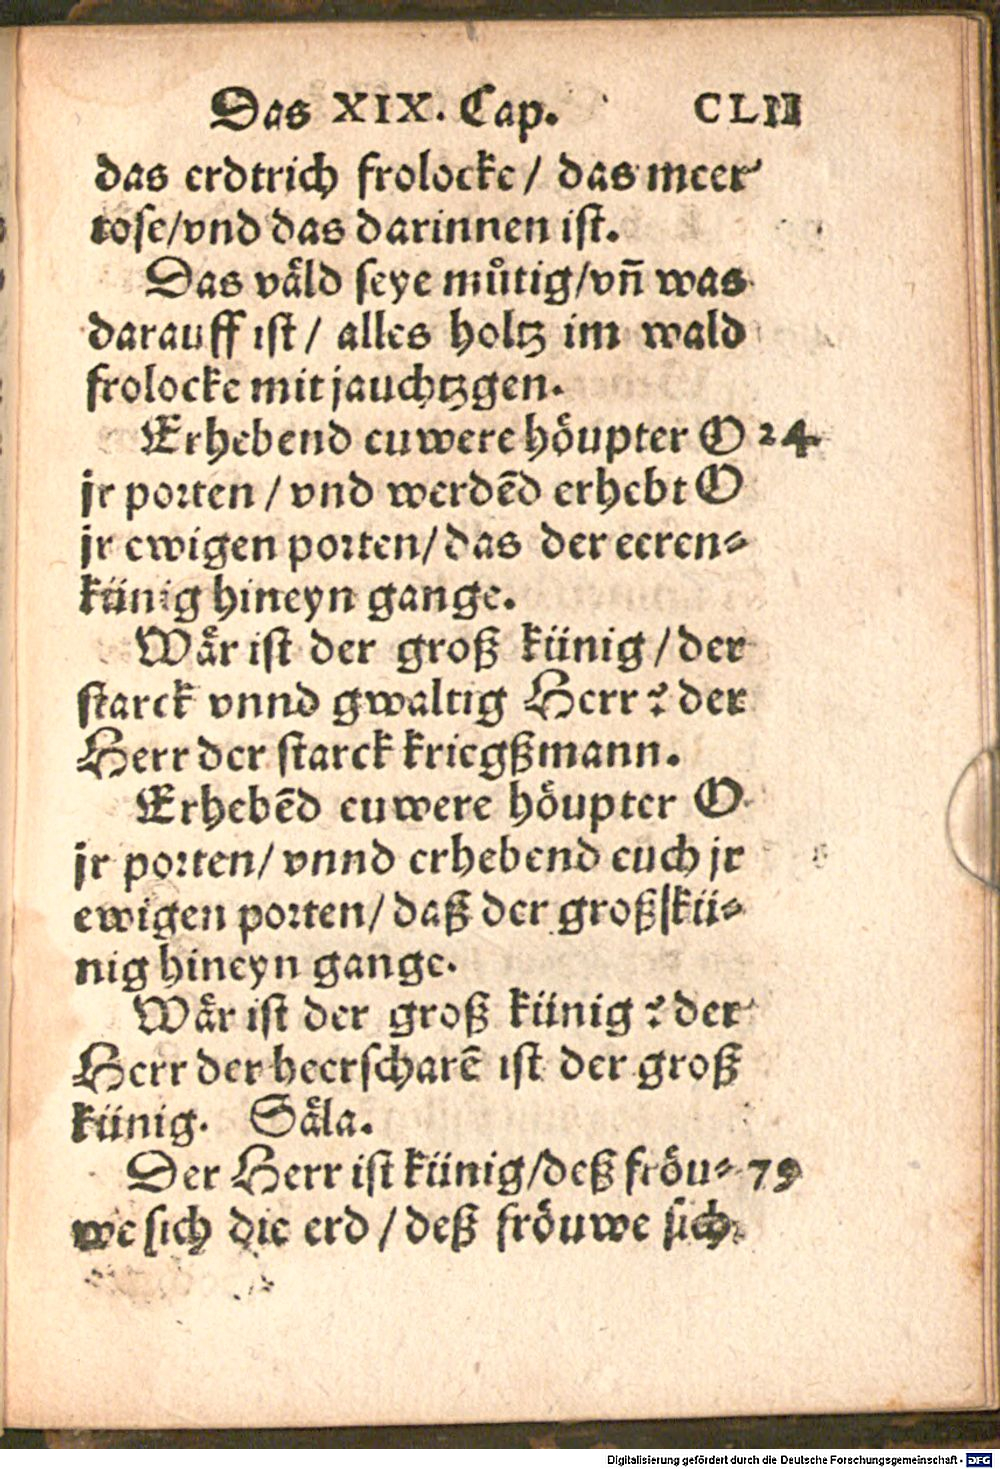 Das XIX. Cap. CLII
das erdtrich frolocke / das meer
tose/vnd das darinnen ist.
Das våld seye můtig/vñ was
darauff ist / alles holtz im wald
frolocke mit jauchtzgen.
Erhebend euwere höupter O 24.
jr porten / vnd werdēd erhebt O
jr ewigen porten/das der eeren⸗
künig hineyn gange.
Wår ist der groß künig / der
starck vnnd gwaltig Herr? der
Herr der starck kriegßmann.
Erhebēd euwere höupter O
jr porten/ vnnd erhebend euch jr
ewigen porten/ daß der groß kü⸗
nig hineyn gange.
Wår ist der groß künig? der
Herr der heerscharē ist der groß
künig. Såla.
Der Herr ist künig/deß fröu⸗ 79
we sich die erd / deß fröuwe sich
Digitalisierung gefördert durch die Deutsche Forschungsgemeinschaft - DFG